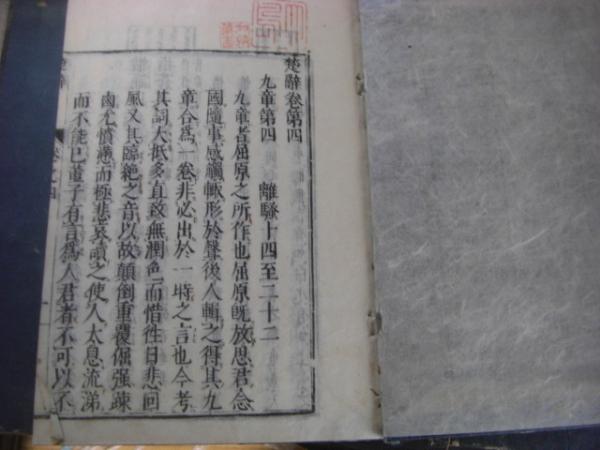 楚辭卷第四
九章第四　離騷十四至二十二
九章者屈原之所作也屈原旣放思君念
國隨事感觸輒形於聲後人輯之得其九
章合爲一卷非必出於一時之言也今考
其詞大抵多直致無潤色而惜往日悲回
風又其臨絶之音以故顚倒重覆倔强疎
鹵尤憤懣而極悲哀讀之使人太息流涕
而不能已董子有言爲人君者不可以不